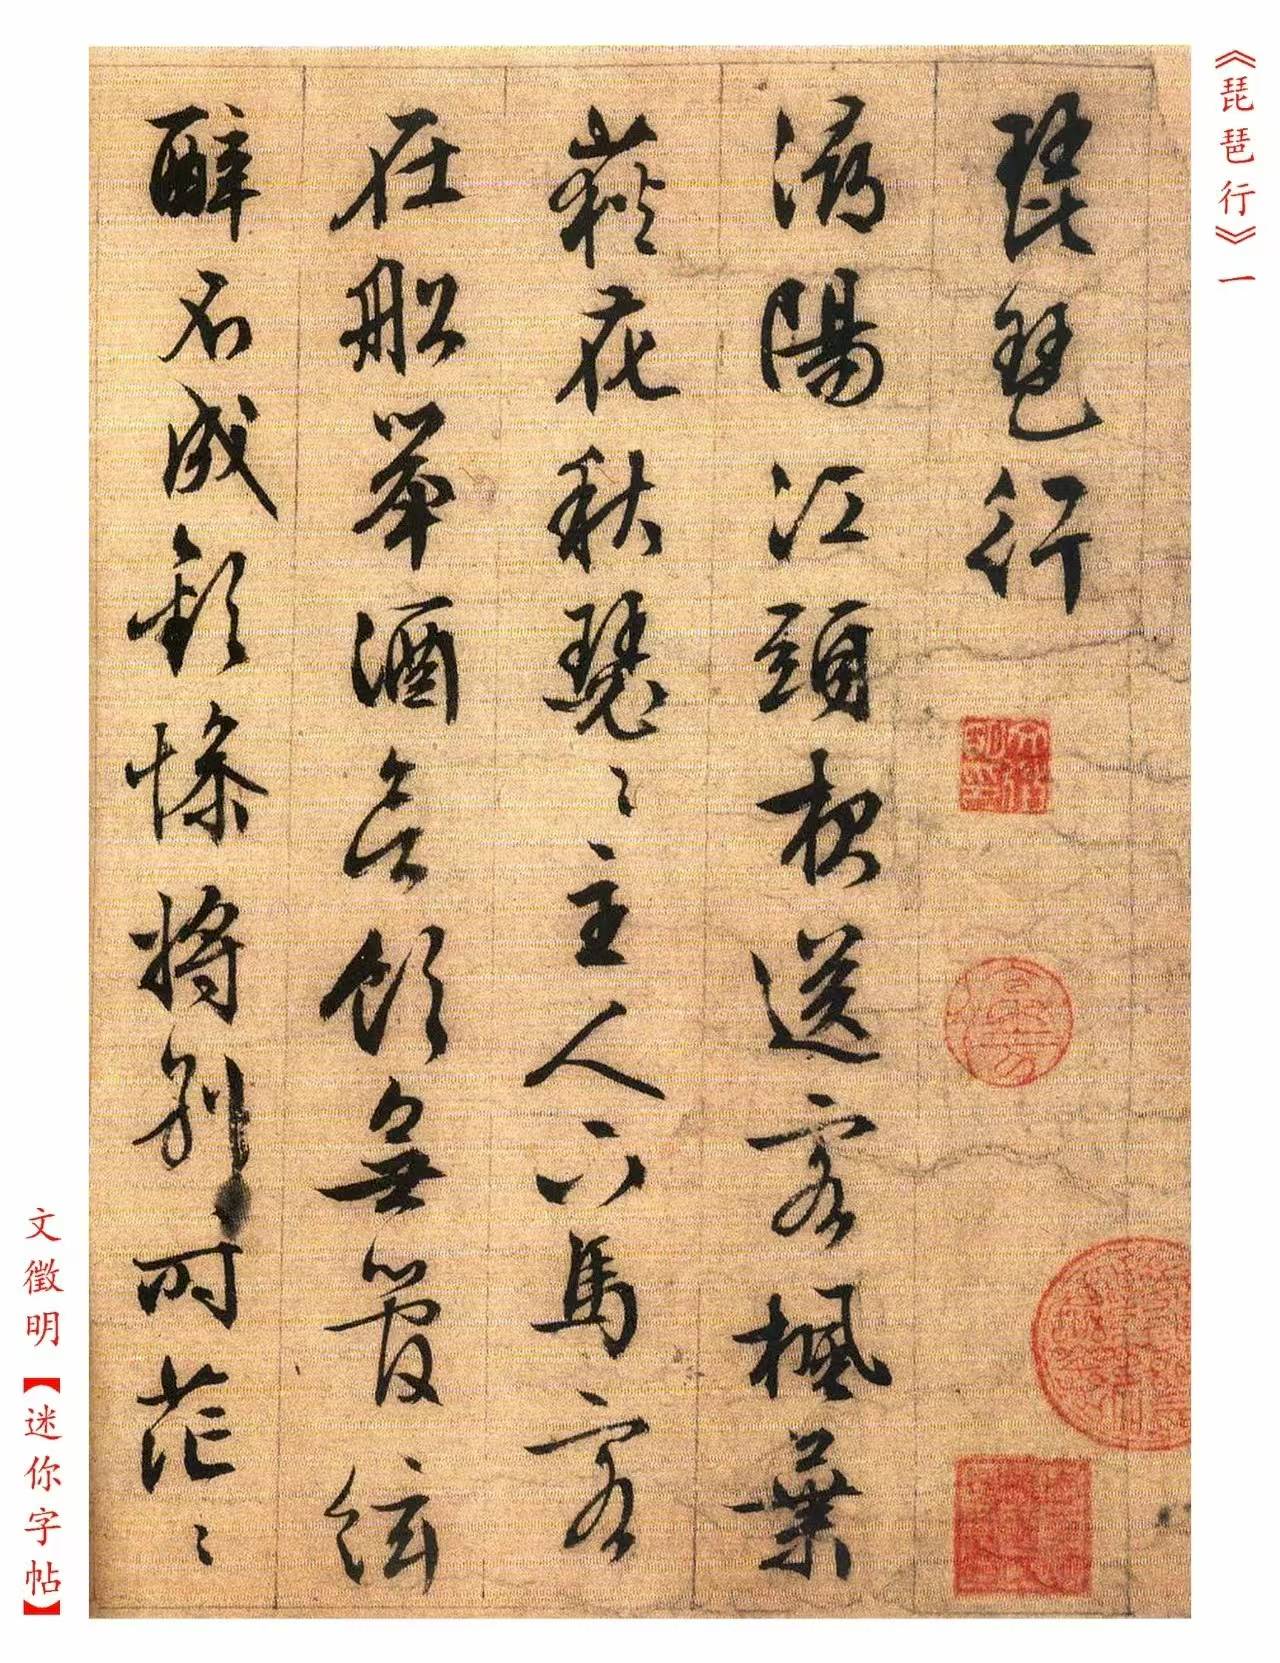 《琵琶行》一
琵琶行
潯陽江頭夜送客楓葉
荻花秋瑟〻主人下馬客
在船舉酒欲飲無管絃
醉不成歡慘將別時茫〻
文徵明【迷你字帖】